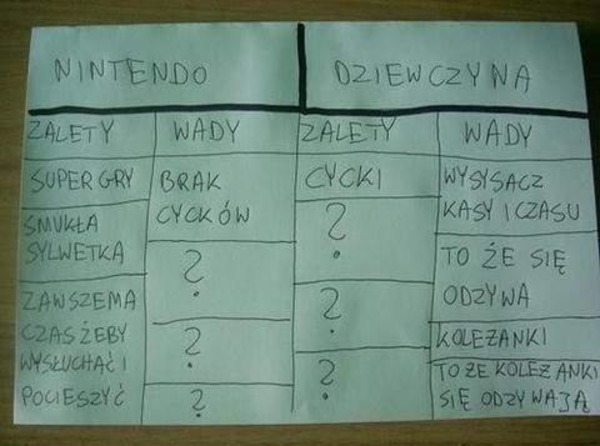 NINTENDO
DZIEWCZYNA
ZALETY
WADY
ZALETY
WADY
SUPER GRY
SMUKŁA
SYLWETKA
ZAWSZE MA
CZAS ŻEBY
WYSŁUCHAĆ I
POCIESZYĆ
BRAK
CYCKÓW
?
?
?
CYCKI
?
?
?
WYSYSACZ
KASY I CZASU
TO ŻE SIĘ
ODZYWA
KOLEŻANKI
TO ŻE KOLEŻANKI
SIĘ ODZYWAJĄ